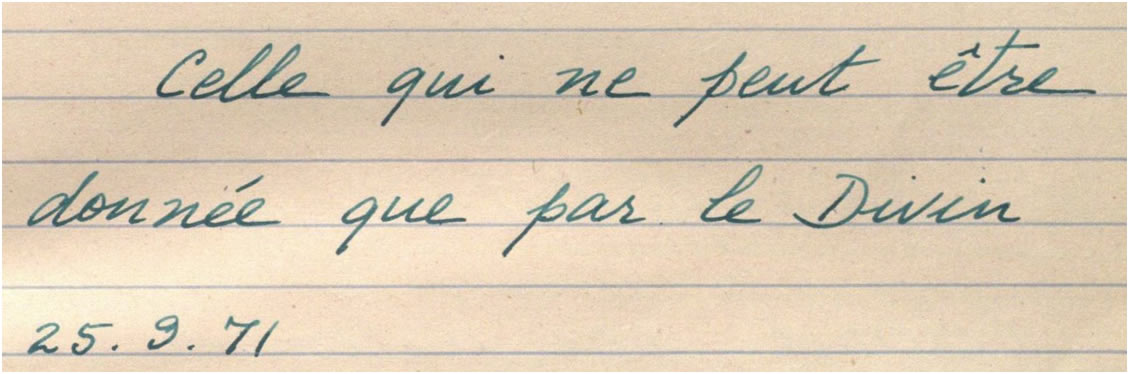 Celle qui ne peut être
donnée que par le Divin
25.9.71